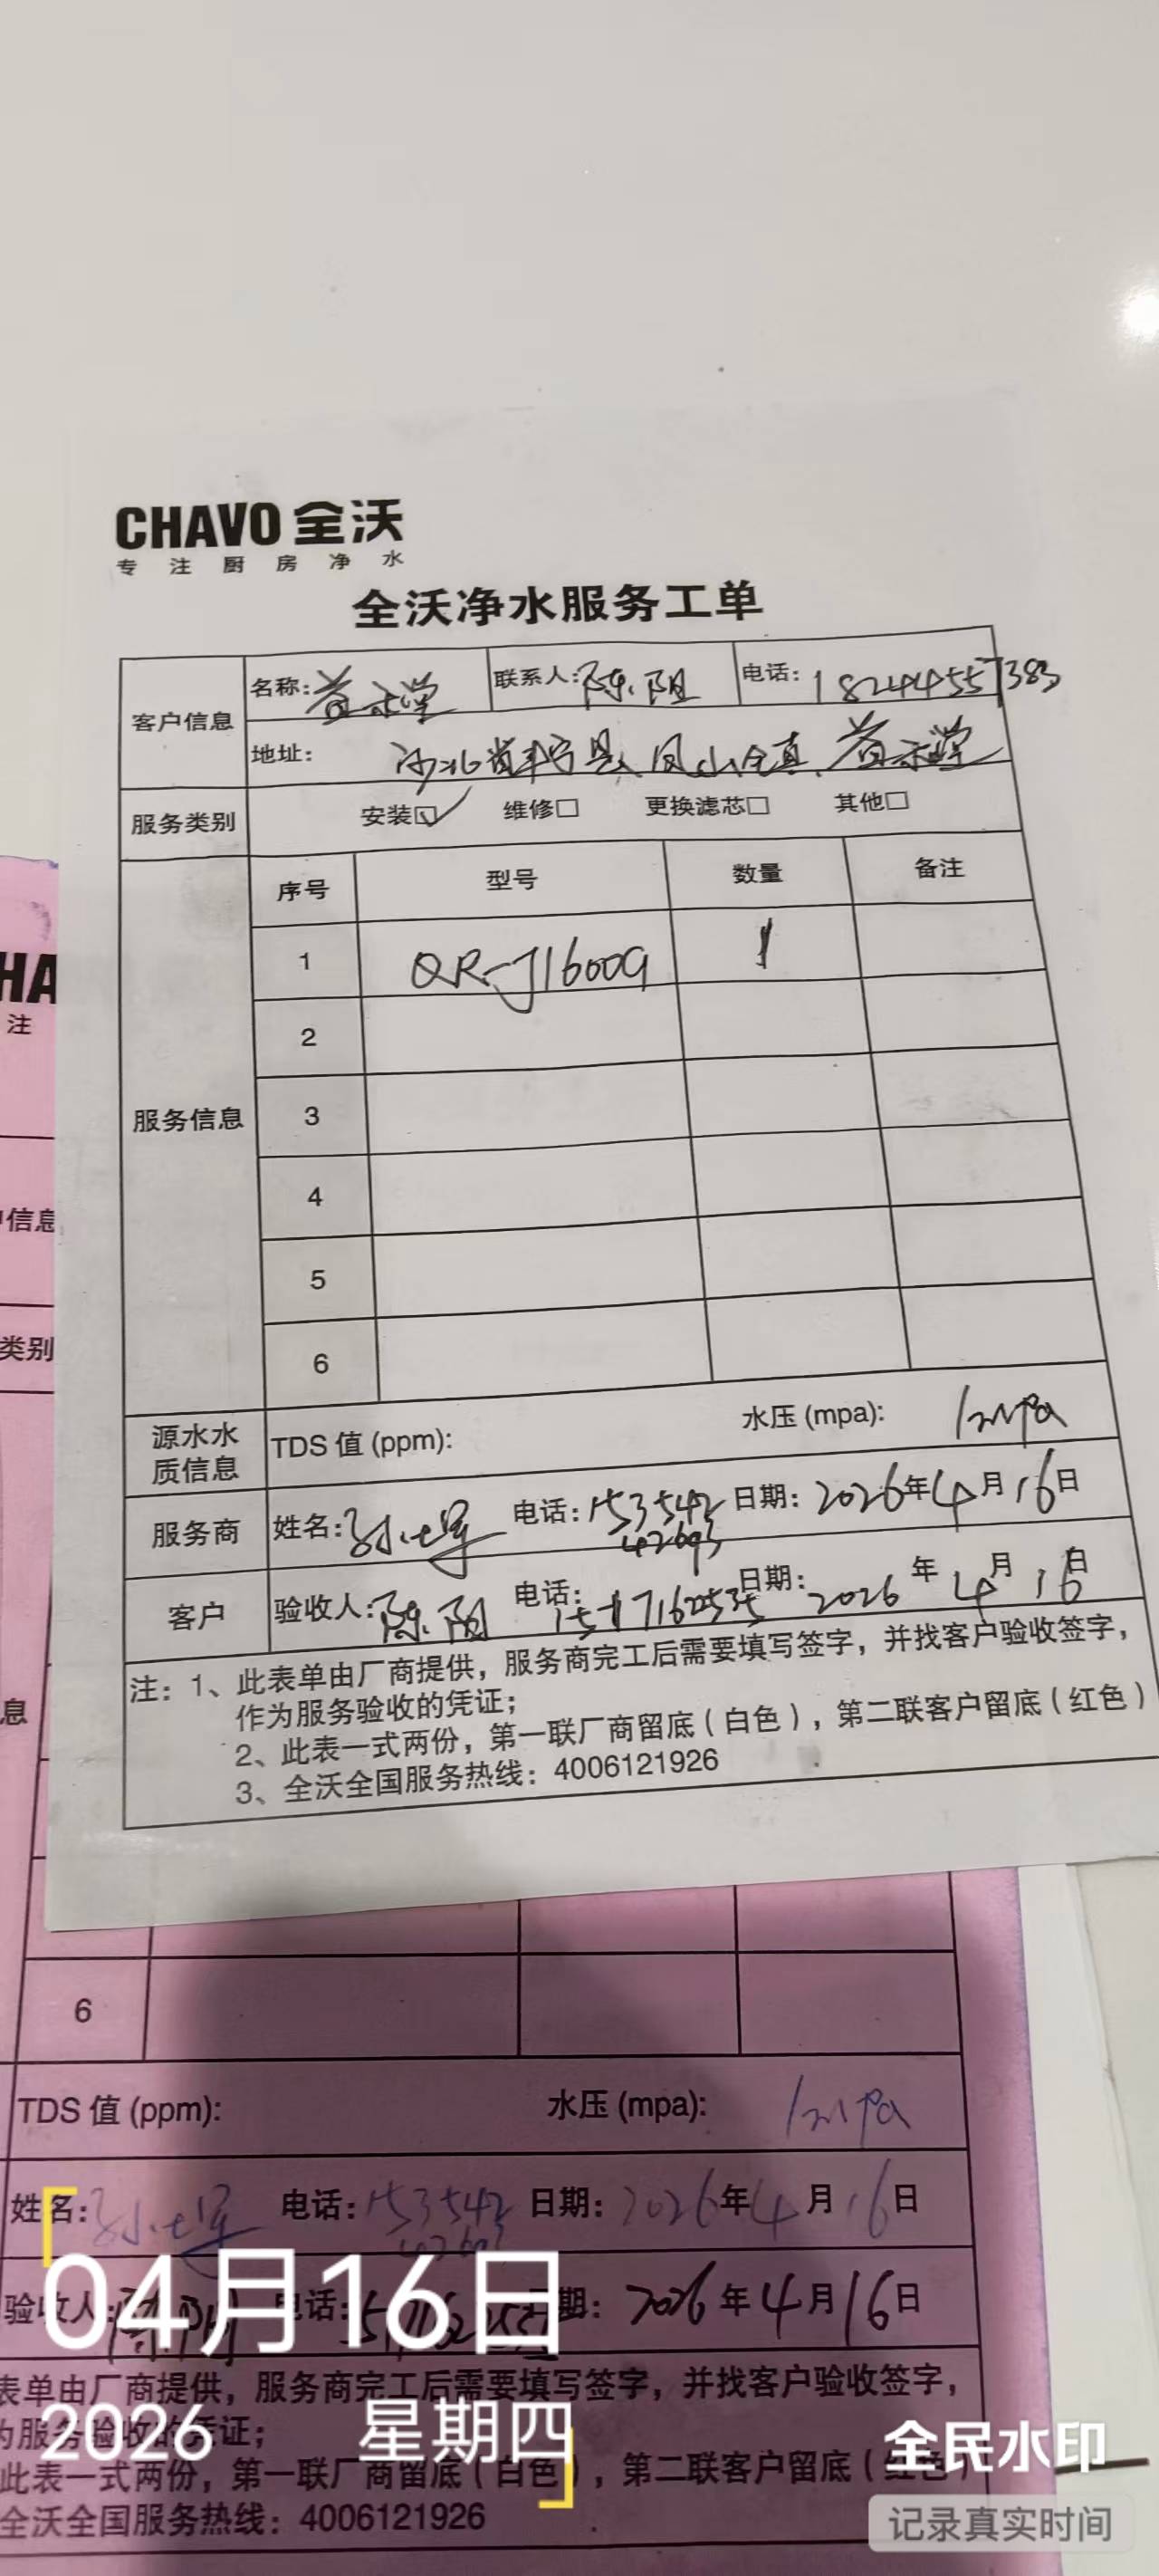 CHAVO 全沃
专注厨房净水
全沃净水服务工单
客户信息 名称: 联系人: 陈阳 电话: 18244557383
地址: 河北省丰宁县凤山镇
服务类别 安装☑ 维修□ 更换滤芯□ 其他□
服务信息 序号 型号 数量 备注
1 QR-J1600G 1
2
3
4
5
6
源水水质信息 TDS 值 (ppm): 水压 (mpa): 1mpa
服务商 姓名: 电话: 15354242693 日期: 2026年4月16日
客户 验收人: 陈阳 电话: 日期: 2026年4月16日
注: 1、此表单由厂商提供，服务商完工后需要填写签字，并找客户验收签字，
作为服务验收的凭证；
2、此表一式两份，第一联厂商留底（白色），第二联客户留底（红色）
3、全沃全国服务热线: 4006121926
HA
注
信息
类别
息
6
TDS 值 (ppm): 水压 (mpa): 1mpa
姓名: 电话: 153542 日期: 2026年4月16日
验收人: 电话: 日期: 2026年4月16日
表单由厂商提供，服务商完工后需要填写签字，并找客户验收签字，
为服务验收的凭证；
此表一式两份，第一联厂商留底（白色），第二联客户留底（红色）
全沃全国服务热线: 4006121926
04月16日
2026 星期四
全民水印
记录真实时间